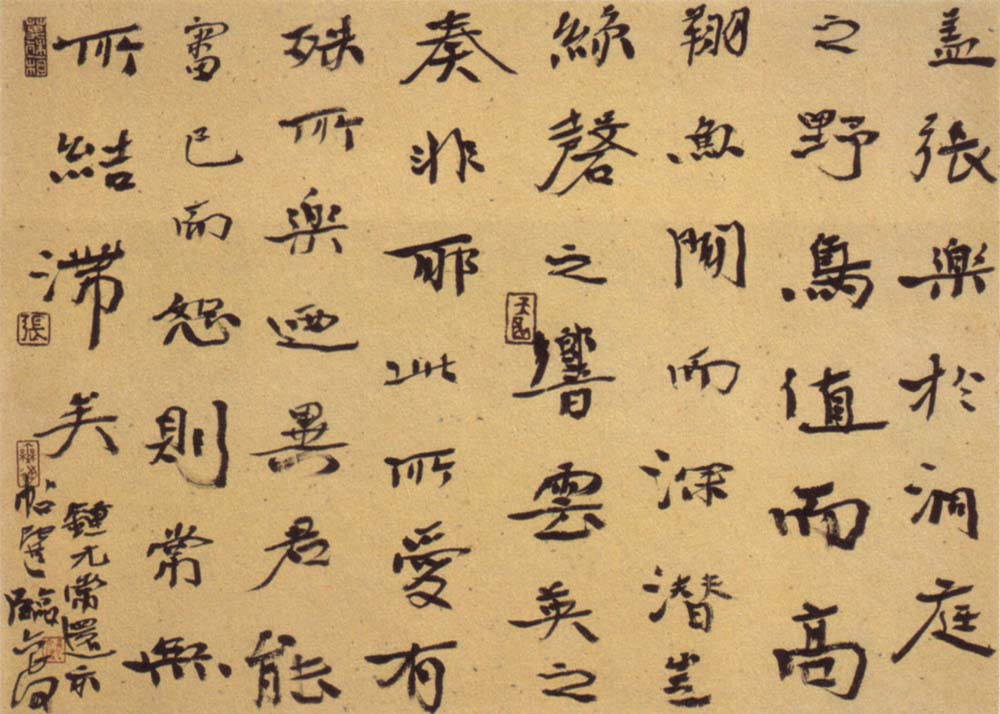 盖張樂於洞庭
之野鳥值而高
翔魚聞而深潛豈
絲磬之響雲英之
奏非耶此所愛有
殊所樂迺異君能
審已而恕則常無
所結滯矣
鍾元常還示
帖 臨
張